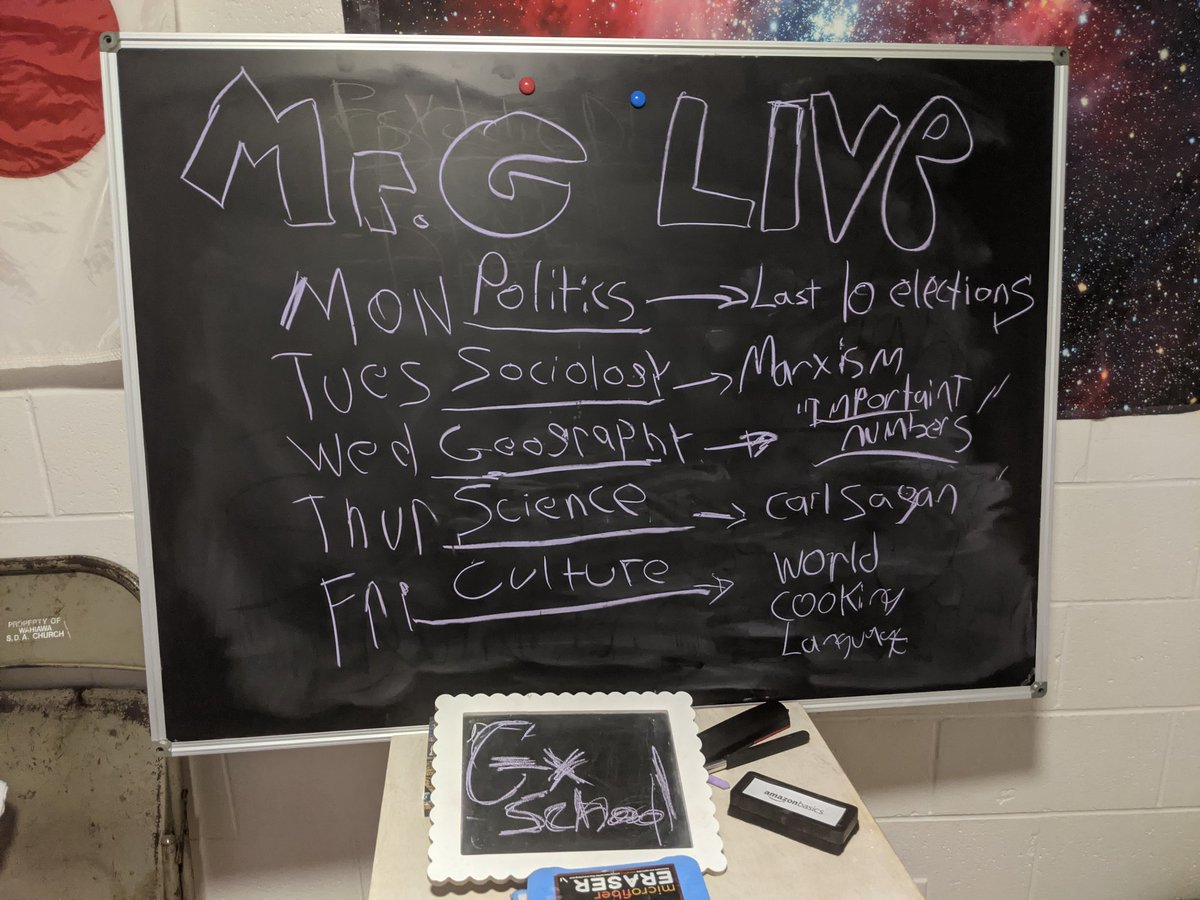 Mr. G LIVe
MON Politics → Last 10 elections
Tues Sociology → Marxism
Wed Geography → "Importaint" numbers
Thur Science → Carl Sagan
Fri Culture → World
Cooking
Language
PROPERTY OF
WAHIAWA
S.D.A. CHURCH
School
amazonbasics
microfiber
ERASER